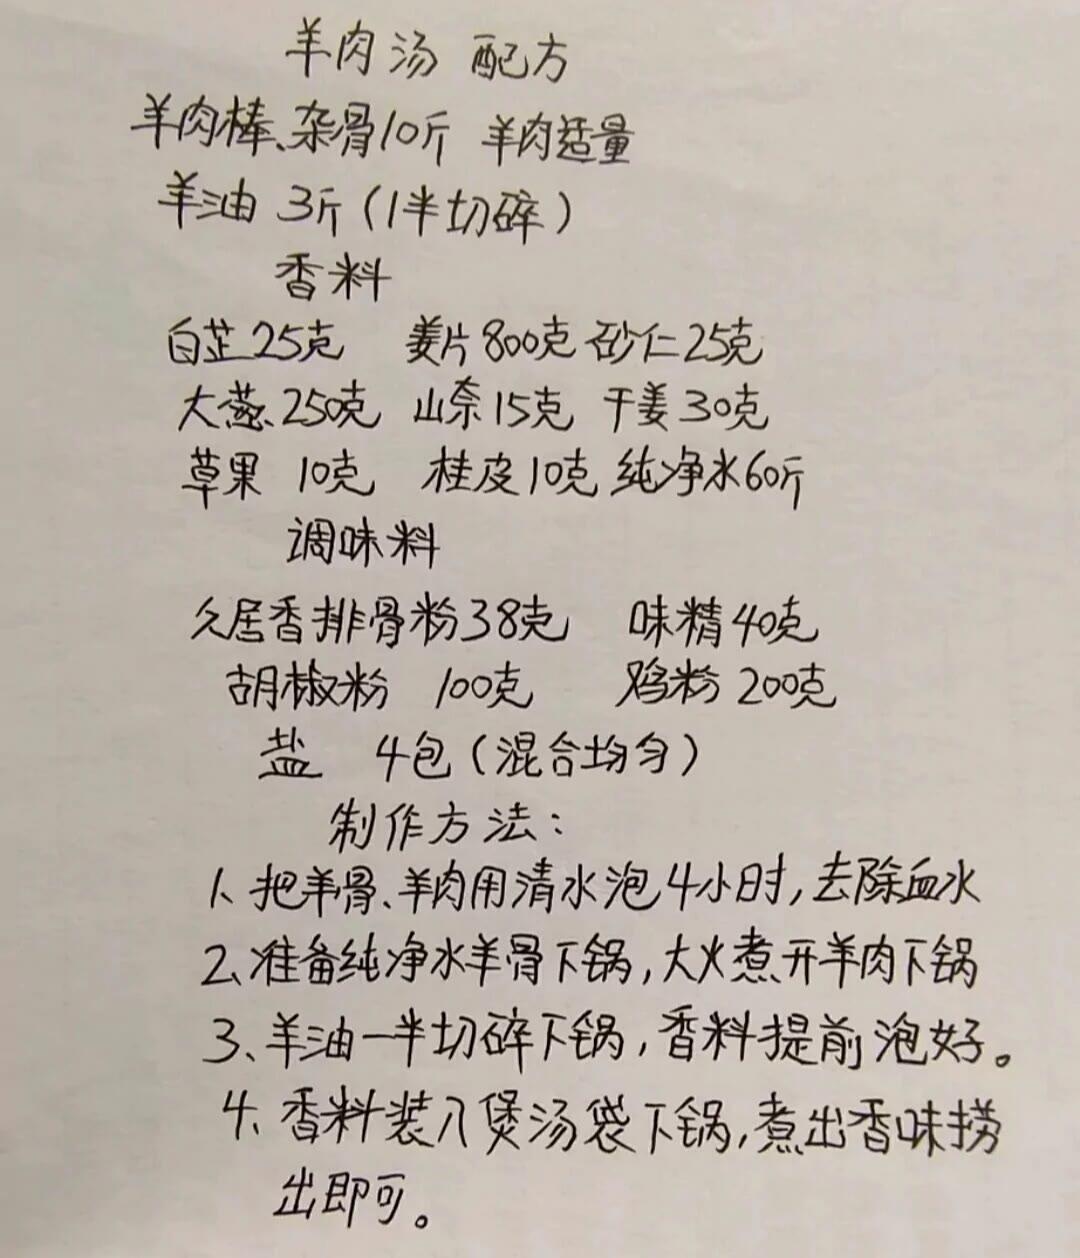 羊肉汤 配方
羊肉棒、杂骨10斤 羊肉适量
羊油 3斤(1半切碎)
香料
白芷25克 姜片800克 砂仁25克
大葱250克 山奈15克 干姜30克
草果 10克 桂皮10克 纯净水60斤
调味料
久居香排骨粉38克 味精40克
胡椒粉 100克 鸡粉200克
盐 4包(混合均匀)
制作方法:
1、把羊骨、羊肉用清水泡4小时,去除血水
2、准备纯净水羊骨下锅,大火煮开羊肉下锅
3、羊油一半切碎下锅,香料提前泡好。
4、香料装入煲汤袋下锅,煮出香味捞
出即可。